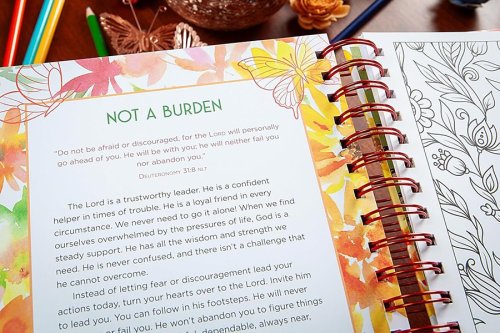 NOT A BURDEN
"Do not be afraid or discouraged, for the LORD will personally
go ahead of you. He will be with you; he will neither fail you
nor abandon you."
DEUTERONOMY 31:8 NLT
The Lord is a trustworthy leader. He is a confident
helper in times of trouble. He is a loyal friend in every
circumstance. We never need to go it alone! When we find
ourselves overwhelmed by the pressures of life, God is a
steady support. He has all the wisdom and strength we
need. He is never confused, and there isn't a challenge that
he cannot overcome.
Instead of letting fear or discouragement lead your
actions today, turn your hearts over to the Lord. Invite him
to lead you. You can follow in his footsteps. He will never
or fail you. He won't abandon you to figure things
dependable, always near,